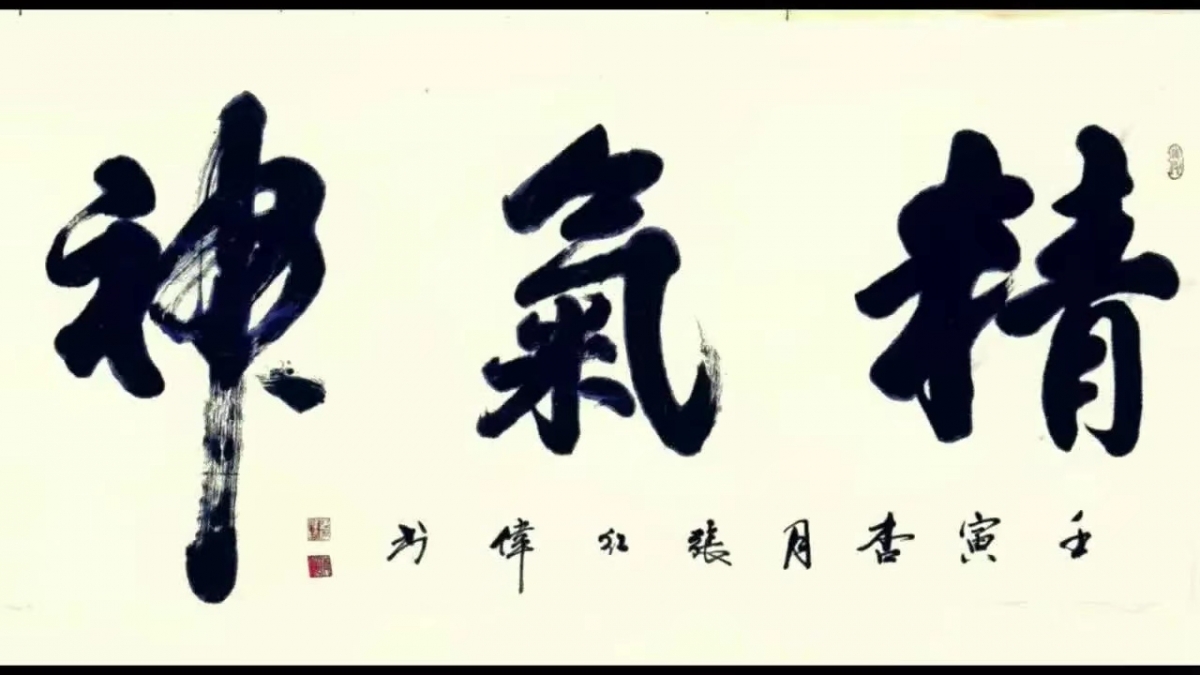 精氣神
壬寅杏月張红偉书